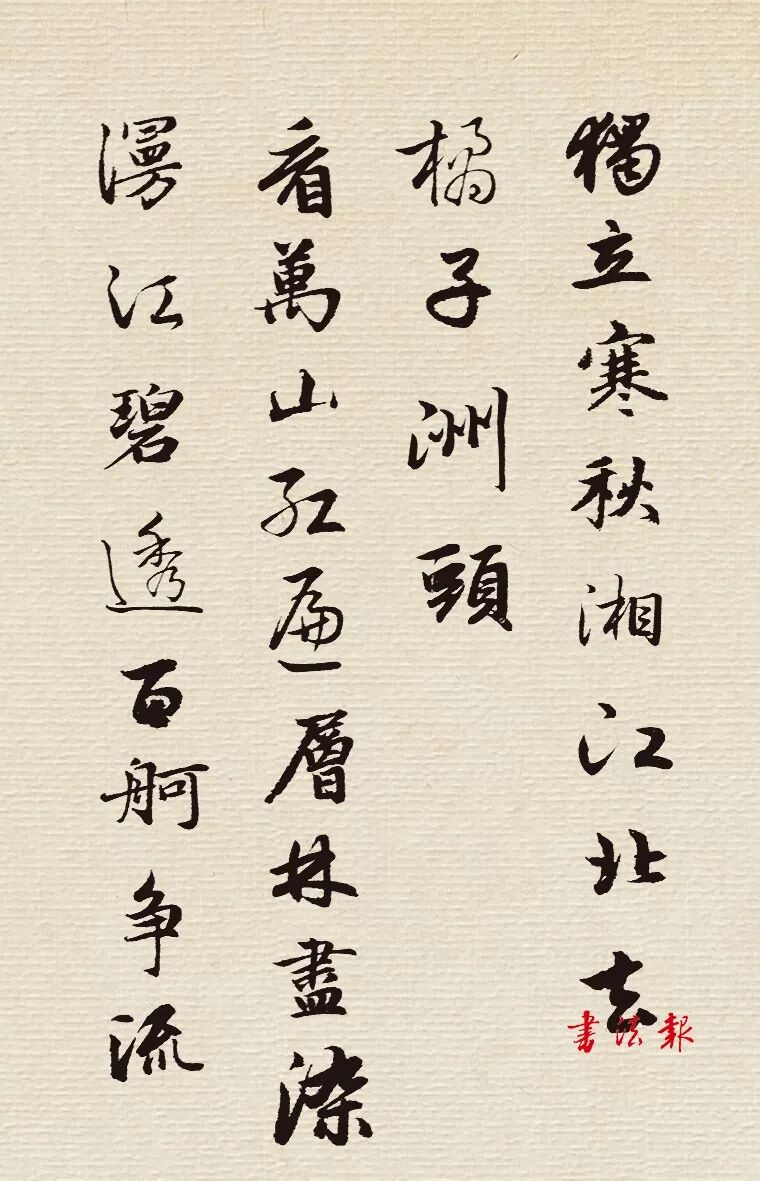 獨立寒秋湘江北去
橘子洲頭
看萬山红遍層林盡染
漫江碧透百舸争流
書法報